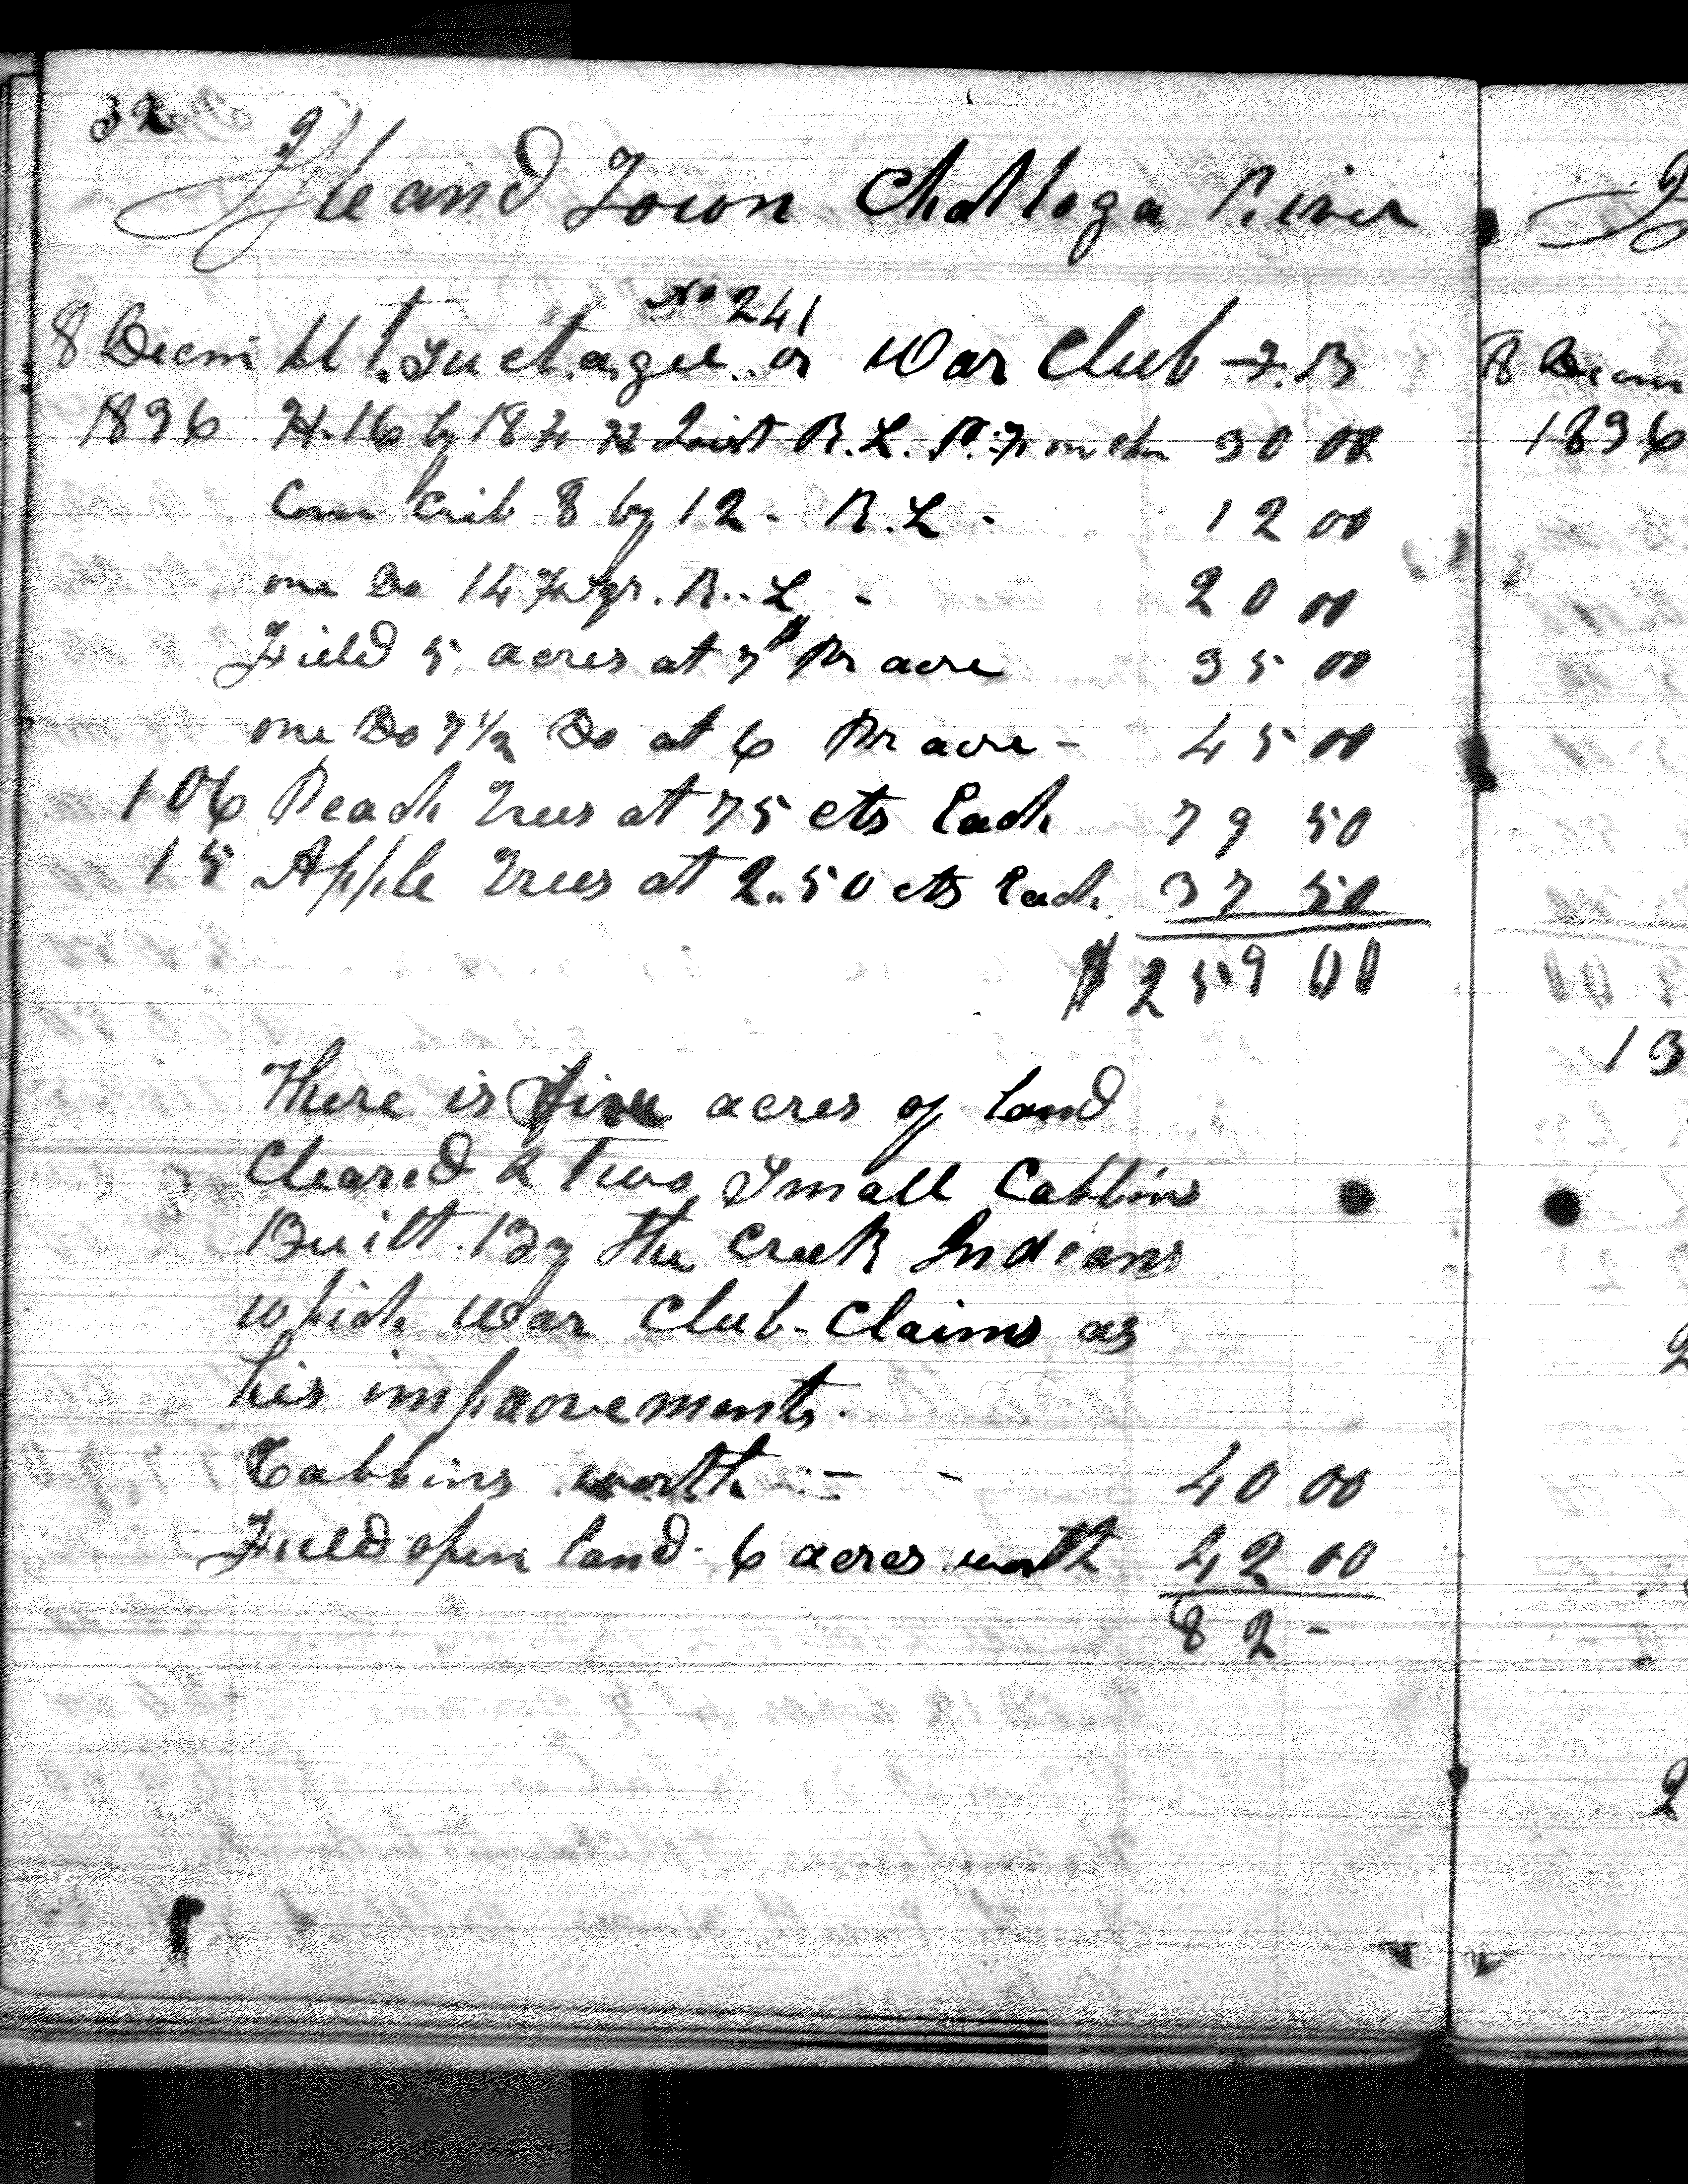 32
Island Town Chattoga River
No 241
8 Decm Ut.su ch.a.gee.. or War Club - F.B
1836 H. 16 by 18 ft H Joist R.L. P.F. 30 00
Corn Crib 8 by 12 - R.L - 12 00
one Do 14 Ft Sqr. R..L - 20 00
Field 5 acres at 7$ Pr acre 35 00
one Do 7 1/2 Do at 6 Pr acre - 45 00
106 Peach Trees at 75 cts Each 79 50
15 Apple Trees at 2..50 cts Each 37 50
$ 259 00
There is five acres of Land
Cleared & Two Small Cabbins
Built. By the Creek Indians
which War Club - Claims as
his improvements.
Cabbins worth :- - 40 00
Field open land - 6 acres worth 42 00
82 -
8 Decm
1836
13
2
2